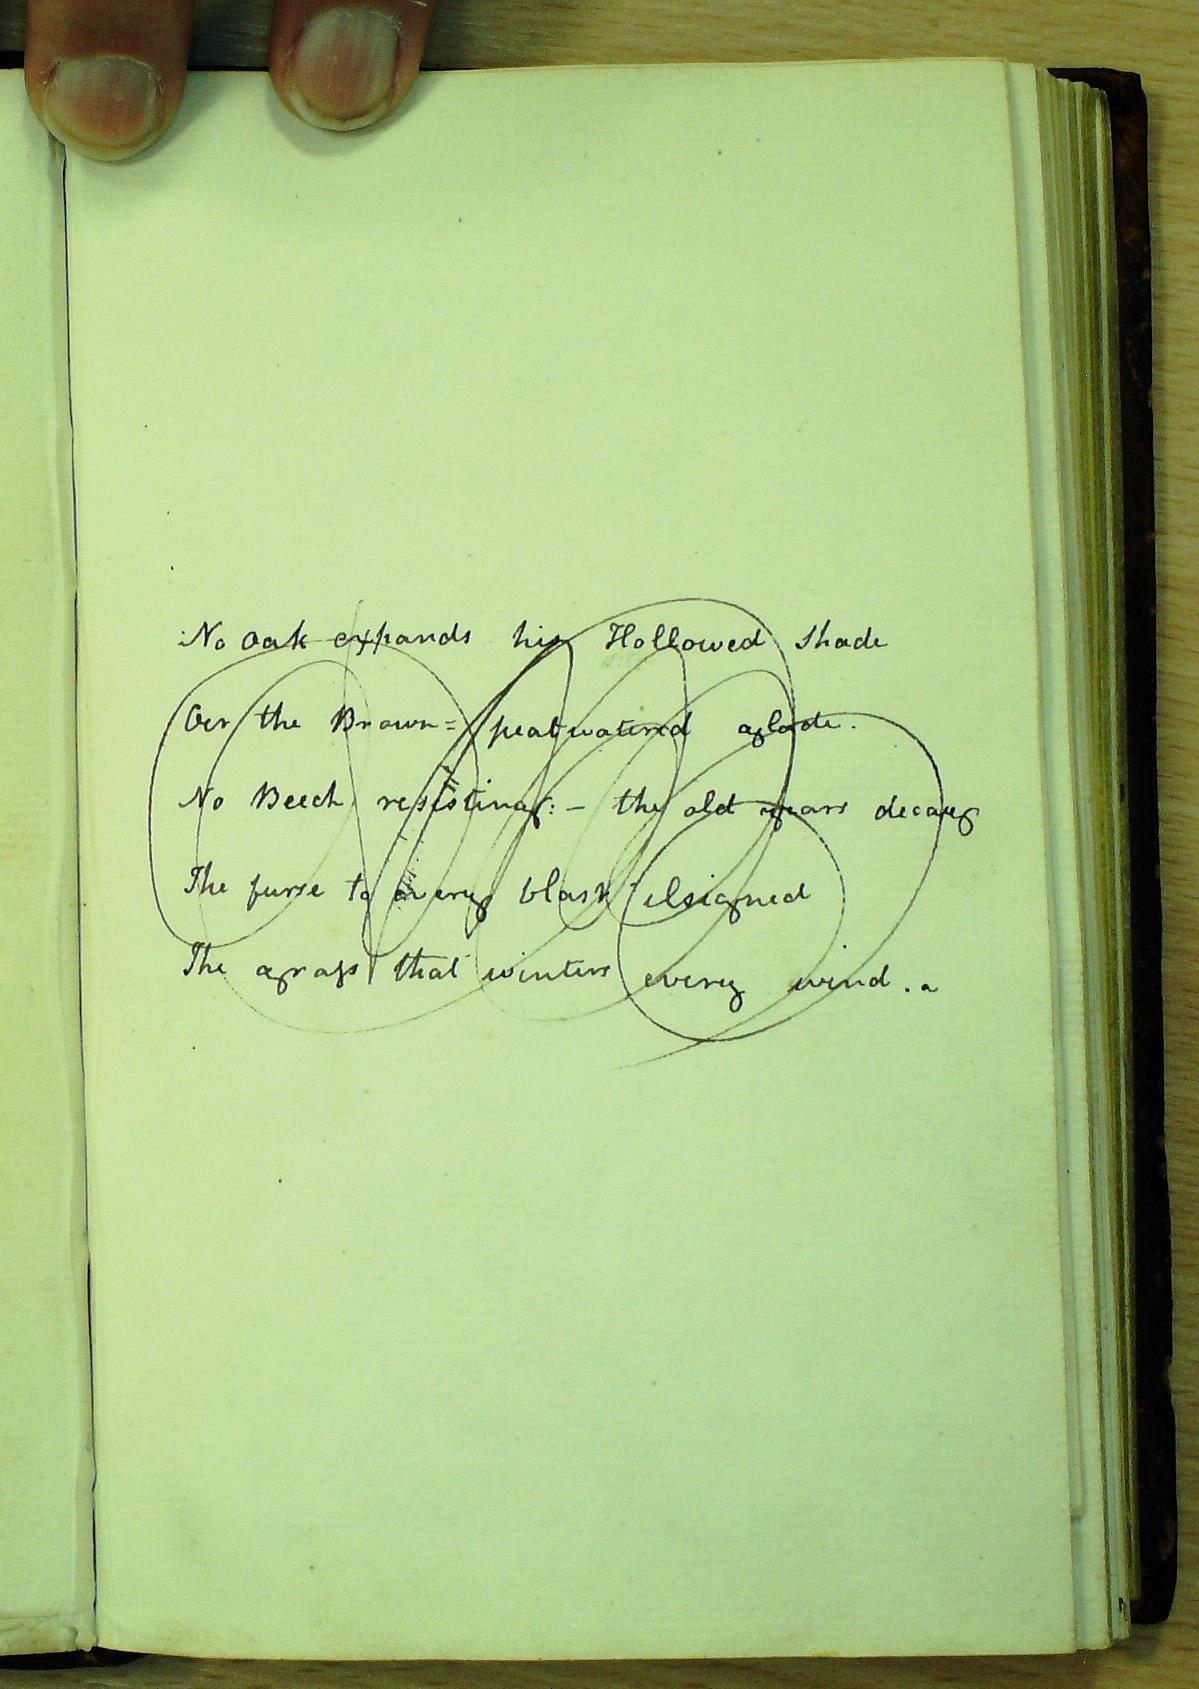 No Oak expands his Hollowed Shade
Oer the Brown= peatwaterd glade.
No Beech resisting:- the old years decay
The furse to every blast
The grass that winters every wind.